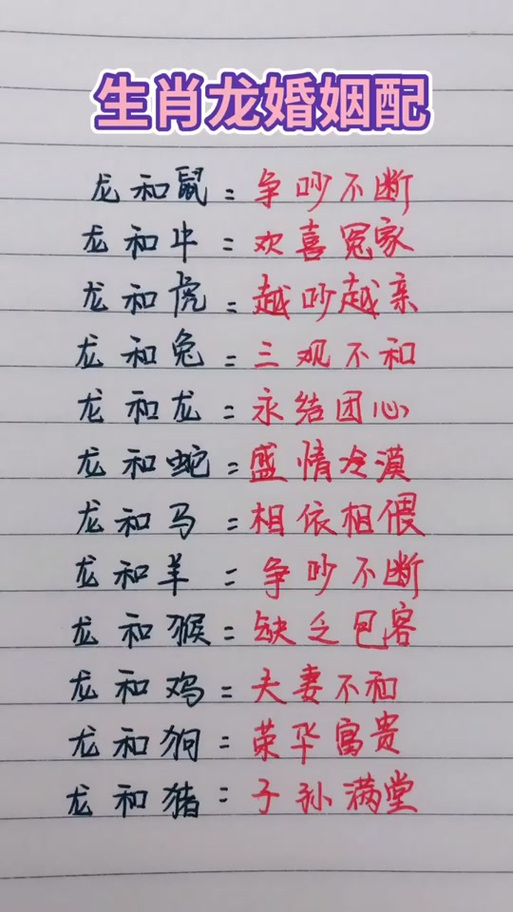 生肖龙婚姻配
龙和鼠=争吵不断
龙和牛=欢喜冤家
龙和虎=越吵越亲
龙和兔=三观不和
龙和龙=永结团心
龙和蛇=盛情冷漠
龙和马=相依相偎
龙和羊=争吵不断
龙和猴=缺乏包容
龙和鸡=夫妻不和
龙和狗=荣华富贵
龙和猪=子孙满堂